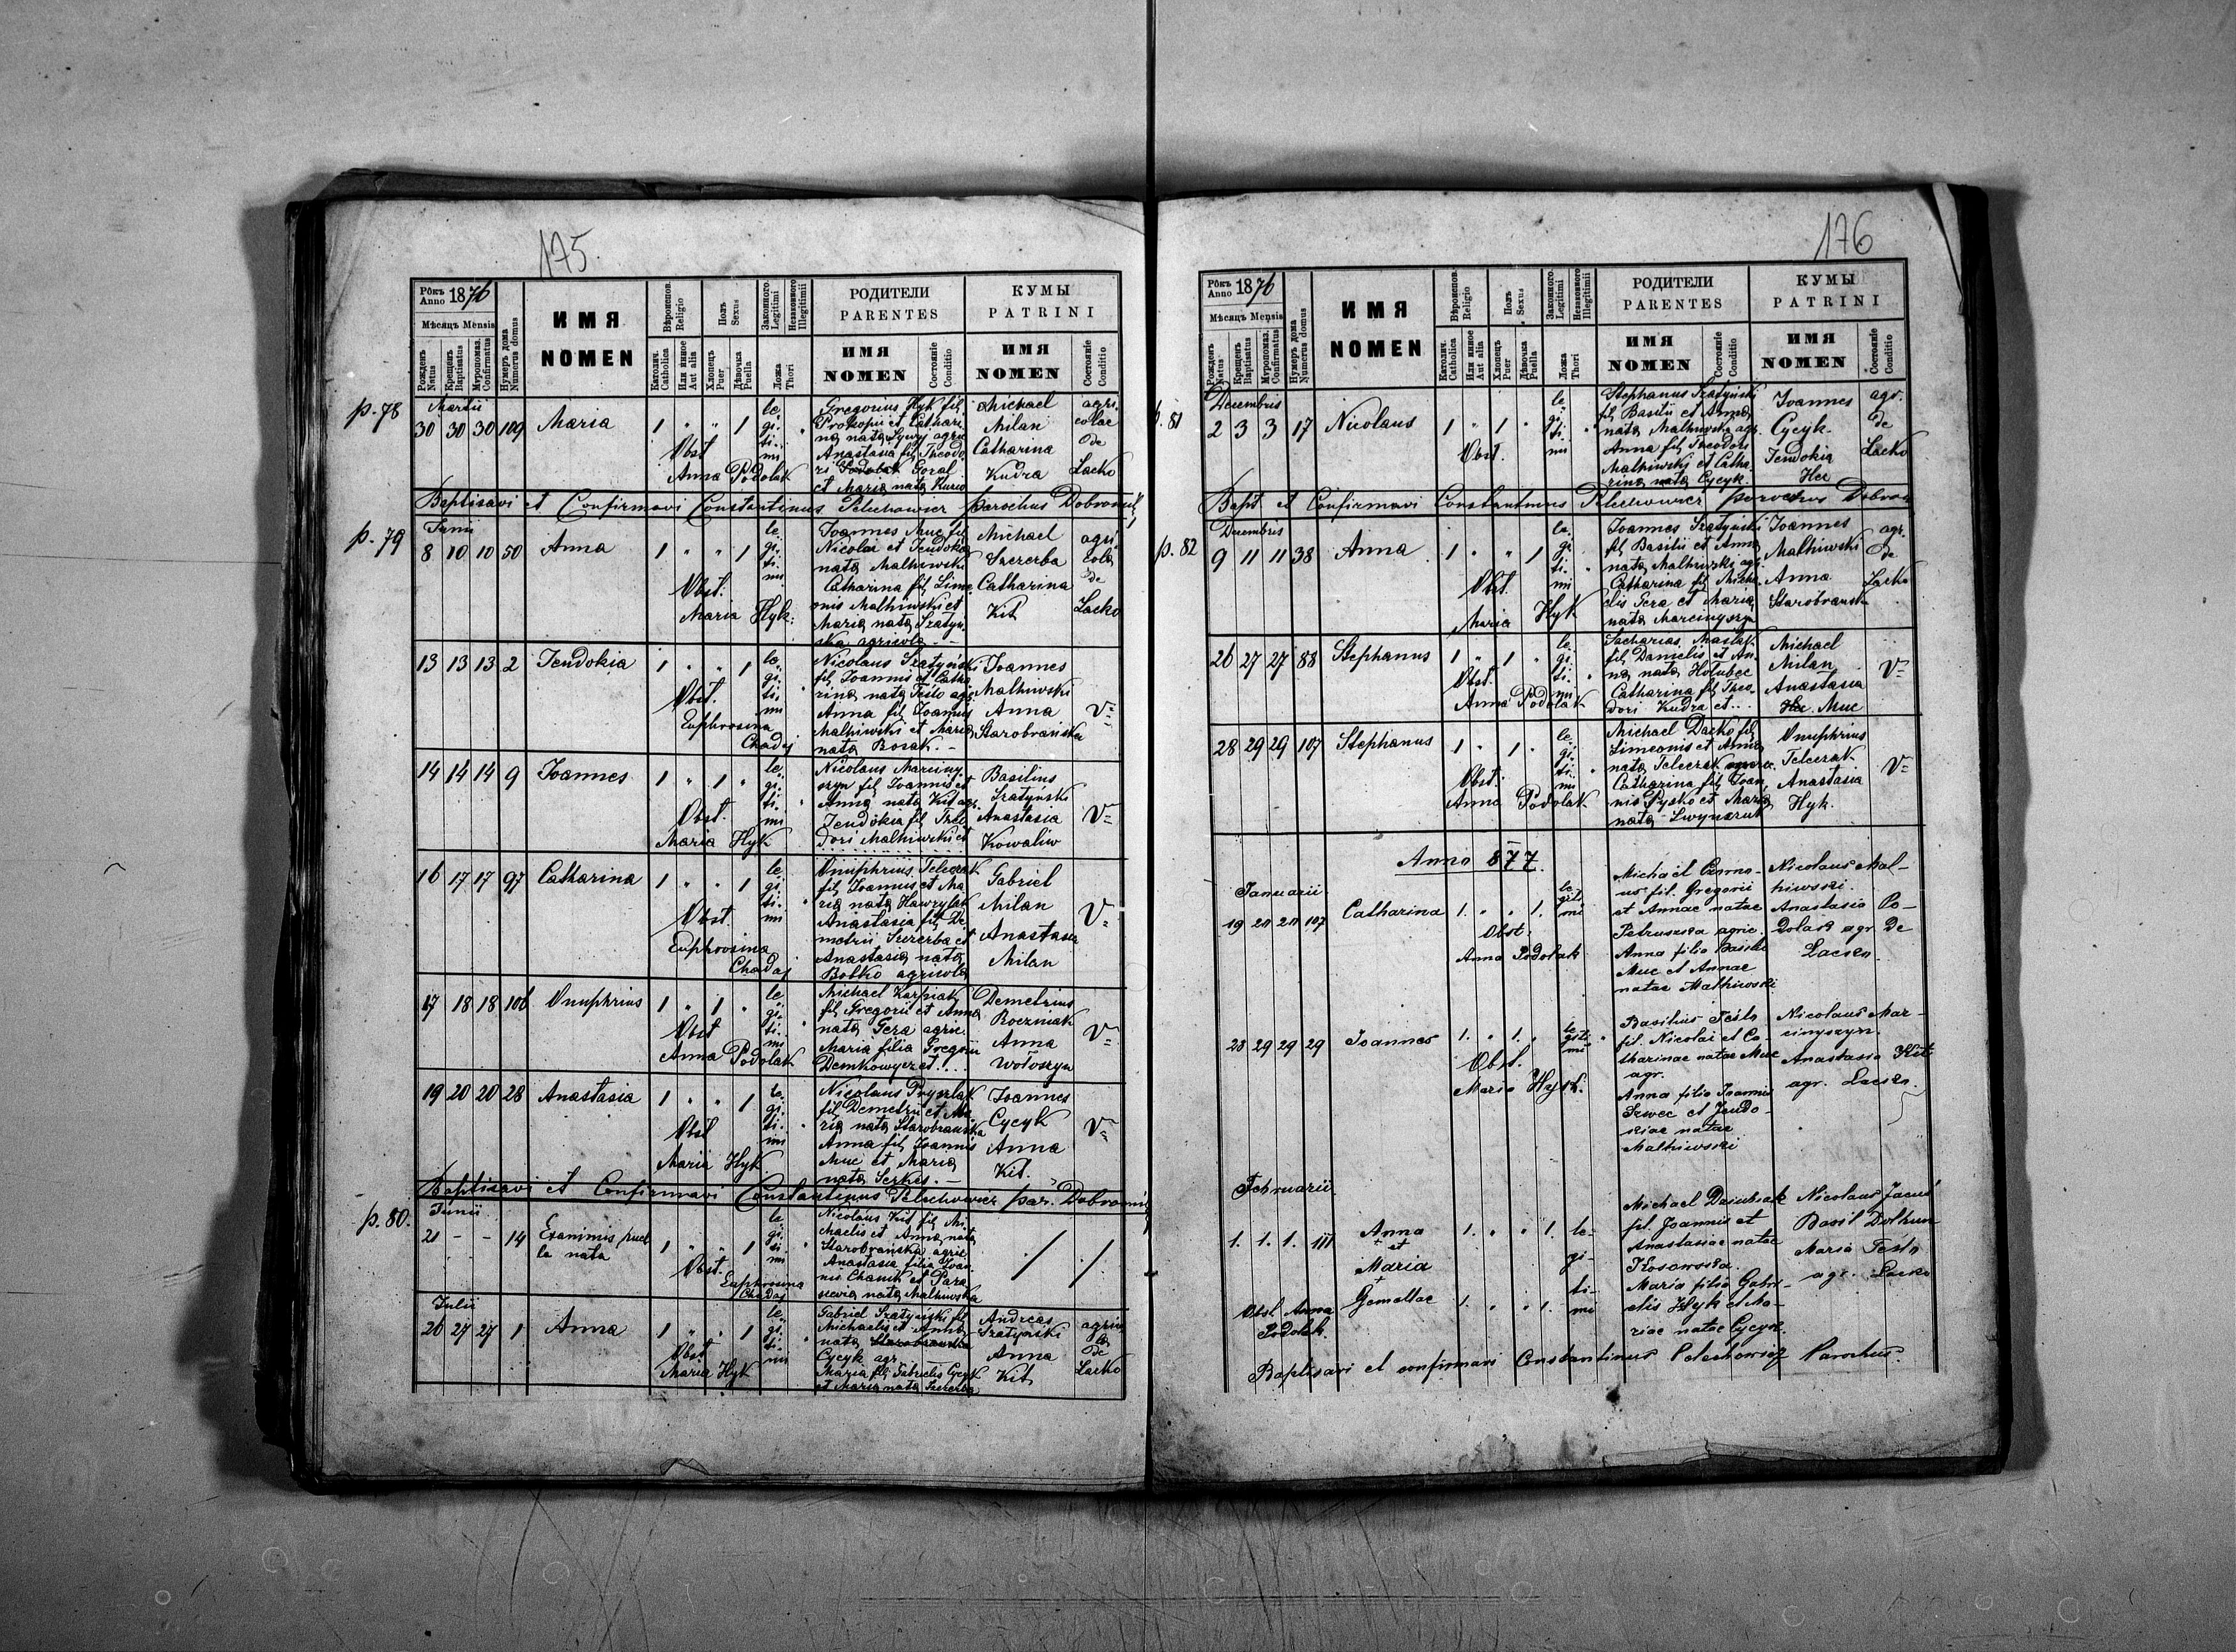 175.
Рôкъ Anno 1876
Мѣсяцъ Mensis
Рожденъ Natus
Крещенъ Baptisatus
Муропомаз. Confirmatus
Нумеръ дома Numerus domus
ИМЯ NOMEN
Вѣроисповѣд. Religio
Католич. Catholica
Или инное Aut alia
Полъ Sexus
Хлопецъ Puer
Дѣвочка Puella
Законного Legitimi
Незаконного Illegitimii
Ложа Thori
РОДИТЕЛИ PARENTES
ИМЯ NOMEN
Состояніе Conditio
КУМЫ PATRINI
ИМЯ NOMEN
Состояніе Conditio
p. 78
Martii
30 30 30 109 Maria 1 " " 1 legitimi
Obst Anna Podolak
Gregorius Hyk fil.
Prokopii et Cathari
na nata agri
Anastasia fil. Theodo
ri Podolak Goral
et Maria nata
Michael
Milan
Catharina
Kudra
agri
colae
de
Lacko
Baptisavi et Confirmavi Constantinus Pelechowicz parochus Dobromil
p. 79
Junii
8 10 10 50 Anna 1 " " 1 legitimi
Obst. Maria Hyk.
Joannes Muc fil.
Nicolai et Jendokia
nata Malhiwski
Catharina fil. Sime
onis Malhiwski et
Maria nata Szatyn
ska agricola
Michael
Szczerba
Catharina
Kit
agri
cola
de
Lacko
13 13 13 2 Jendokia 1 " " 1 legitimi
Obst. Euphrosina Chadaj
Nicolaus Szatyński
fil. Joannis et Catha
rina nata Testo agr.
Anna fil. Joannis
Malhiwski et Maria
nata Bosak.
Joannes
Malhiwski
Anna
Starobrańska
V=
14 14 14 9 Joannes 1 " 1 " legitimi
Obst. Maria Hyk
Nicolaus Marciny
szyn fil. Joannis et
Anna nata Kit agr.
Jendokia fil. Theo
dori Malhiwski et
Basilius
Szatyński
Anastasia
Kowaliw
V=
16 17 17 97 Catharina 1 " " 1 legitimi
Obst. Euphrosina Chadaj
Onuphrius Teleczak
fil. Joannis et Ma
ria nata Hawrylak
Anastasia fil. De
metrii Szczerba et
Anastasia nata
Botko agricola
Gabriel
Milan
Anastasia
Milan
V=
17 18 18 106 Onuphrius 1 " 1 " legitimi
Obst Anna Podolak
Michael Karpiak
fil. Gregorii et Anna
nata Gera agric.
Maria filia Gregorii
Demkowycz et
Demetrius
Roczniak
Anna
Wołoszyn
V=
19 20 20 28 Anastasia 1 " " 1 legitimi
Obst Maria Hyk
Nicolaus Pryszlak
fil. Demetrii et Ma
ria nata Starobranska
Anna fil. Joannis
Muc et Maria
nata Serkes.
Joannes
Cycyk
Anna
Kit.
V=
Baptisavi et Confirmavi Constantinus Pelechowicz par. Dobromil
p. 80.
Junii
21 - - 14 Exanimis puel
la nata 1 " " 1 legitimi
Obst. Euphrosina Chadaj
Nicolaus Kit fil. Mi
chaelis et Anna nata
Starobrańska agric.
Anastasia filia Joan
nis et Para
scevia nata Malhiwska
Julii
26 27 27 1 Anna 1 " " 1 legitimi
Obst. Maria Hyk
Gabriel Szatyński fil.
Michaelis et Anna
nata Starobranska
Cycyk agr.
Maria fil. Gabrielis Cycyk
et Maria nata Szczerba
Andreas
Szatyński
Anna
Kit
agrico
la
de
Lacko
176
Рôкъ Anno 1876
Мѣсяцъ Mensis
Рожденъ Natus
Крещенъ Baptisatus
Муропомаз. Confirmatus
Нумеръ дома Numerus domus
ИМЯ NOMEN
Вѣроисповѣд. Religio
Католич. Catholica
Или инное Aut alia
Полъ Sexus
Хлопецъ Puer
Дѣвочка Puella
Законного Legitimi
Незаконного Illegitimii
Ложа Thori
РОДИТЕЛИ PARENTES
ИМЯ NOMEN
Состояніе Conditio
КУМЫ PATRINI
ИМЯ NOMEN
Состояніе Conditio
p. 81
Decembris
2 3 3 17 Nicolaus 1 " 1 " legitimi
Obst.
Stephanus Szatyński
fil. Basilii et Anna
nata Malhiwska agr.
Anna fil. Theodori
Malhiwski et Catha
rina nata Cycyk.
Joannes
Cycyk.
Jendokia
agr.
de
Lacko
Bapt. et Confirmavi Constantinus Pelechowicz parochus Dobrom
p. 82
Decembris
9 11 11 38 Anna 1 " " 1 legitimi
Obst. Maria Hyk
Joannes Szatyński
fil. Basilii et Anna
nata Malhiwski agr.
Catharina fil. Micha
elis Gera et Maria
nata Marcinyszyn
Joannes
Malhiwski
Anna
Starobranska
agr.
de
Lacko
26 27 27 88 Stephanus 1 " 1 " legitimi
Obst. Anna Podolak
Zacharias Maslak
fil. Danielis et An
na nata Holubec
Catharina fil. Theo
dori Kudra et
Michael
Milan
Anastasia
Muc
V=
28 29 29 107 Stephanus 1 " 1 " legitimi
Obst. Anna Podolak
Michael Dacko fil.
Simeonis et Anna
nata Teleczak
Catharina fil. Joan
nis Pysko et Maria
nata
Onuphrius
Teleczak
Anastasia
Hyk.
V=
Anno 877.
Januarii
19 20 20 107 Catharina 1. " " 1. legitimi
Obst. Anna Podolak
Michael Czorno
us fil. Gregorii
et Annae natae
Petruszka agric.
Anna filia Basilii
Muc et Annae
natae Malhiwski.
Nicolaus Mal-
hiwski.
Anastasia Po-
dolak agr. de
Lacko.
28 29 29 29 Joannes 1. " 1. " legitimi
Obst. Maria Hyk.
Basilius Testo
fil. Nicolai et Ca-
tharinae natae Muc
agr.
Anna filia Joannis
Szwec et Jendo-
kiae natae
Malhiwski
Nicolaus Mar-
cinyszyn.
Anastasia Kit
agr. Lacko.
Februarii
1. 1. 1. 111 Anna
et
Maria
Gemellae
1. " " 1. legitimi
1. " " 1.
Obst. Anna
Podolak.
Michael Dziubak
fil. Joannis et
Anastasiae natae
Kosowska.
Maria filia Gabri-
elis Hyk et Ma-
riae natae Cycyk.
Nicolaus Jacuś
Basil Dołhun
Maria Testo
agr. Lacko
Baptisavi et confirmavi Constantinus Pelechowicz Parochus.